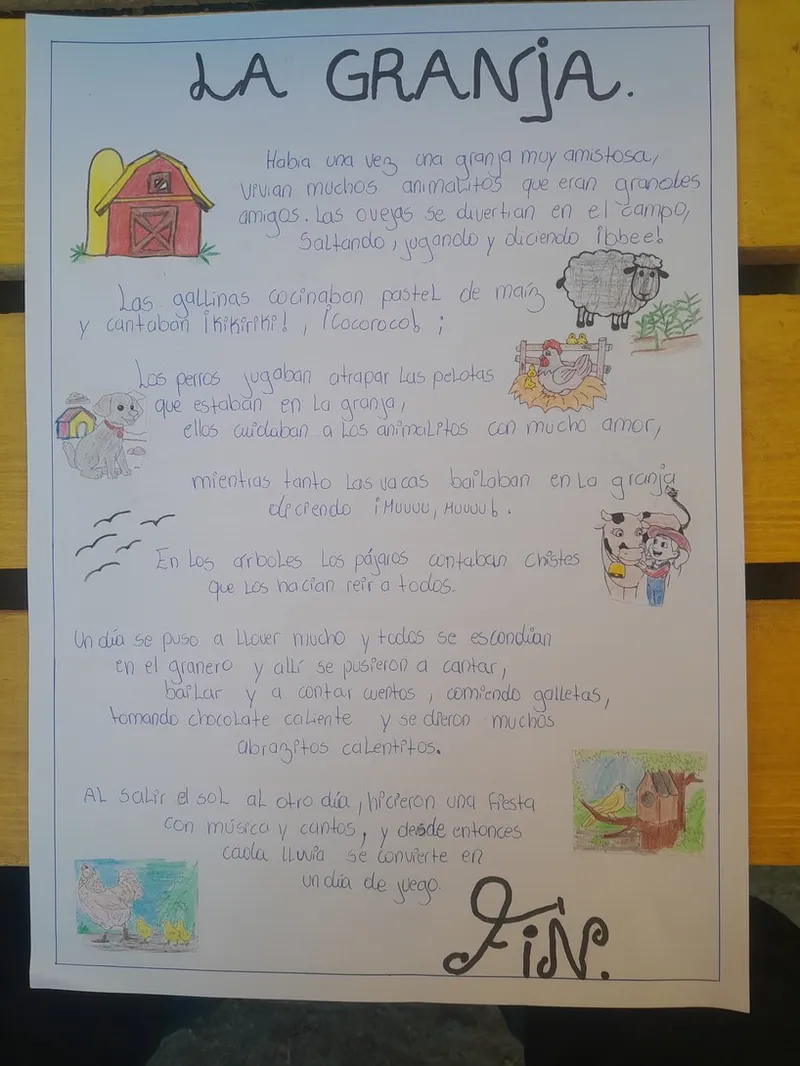 LA GRANJA.
Habia una vez una granja muy amistosa,
vivian muchos animalitos que eran grandes
amigos. Las ovejas se divertian en el campo,
Saltando, jugando y diciendo ¡bbee!
Las gallinas cocinaban pastel de maíz
y cantaban ¡Kikiriki!, ¡Cocoroco! ;
Los perros jugaban atrapar Las pelotas
que estaban en La granja,
ellos cuidaban a Los animalitos con mucho amor,
mientras tanto Las vacas bailaban en La granja
diciendo ¡Muuuu, Muuuu!.
En Los árboles Los pájaros contaban chistes
que Los hacian reir a todos.
Un día se puso a LLover mucho y todos se escondían
en el granero y allí se pusieron a cantar,
bailar y a contar cuentos, comiendo galletas,
tomando chocolate caliente y se dieron muchos
abrazitos calentitos.
AL Salir el sol al otro día, hicieron una fiesta
con música y cantos, y desde entonces
cada LLuvia se convierte en
un día de juego.
FiN.